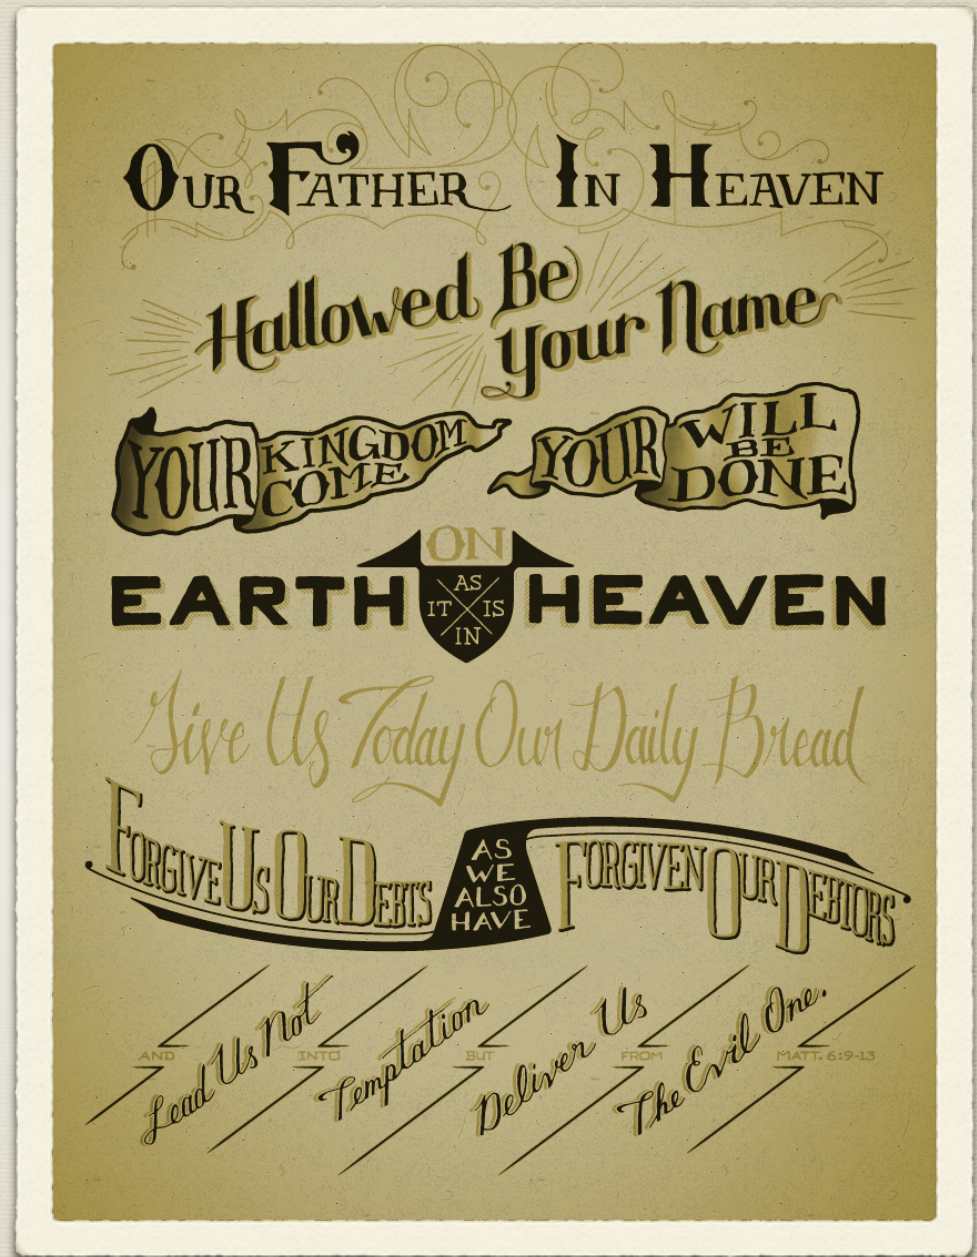 Our Father In Heaven
Hallowed Be
Your Name
YOUR KINGDOM COME YOUR WILL BE DONE
ON
EARTH AS IT IS IN HEAVEN
Give Us Today Our Daily Bread
Forgive Us Our Debts AS WE ALSO HAVE Forgiven Our Debtors
AND Lead Us Not INTO Temptation BUT Deliver Us FROM The Evil One. MATT. 6:9-13